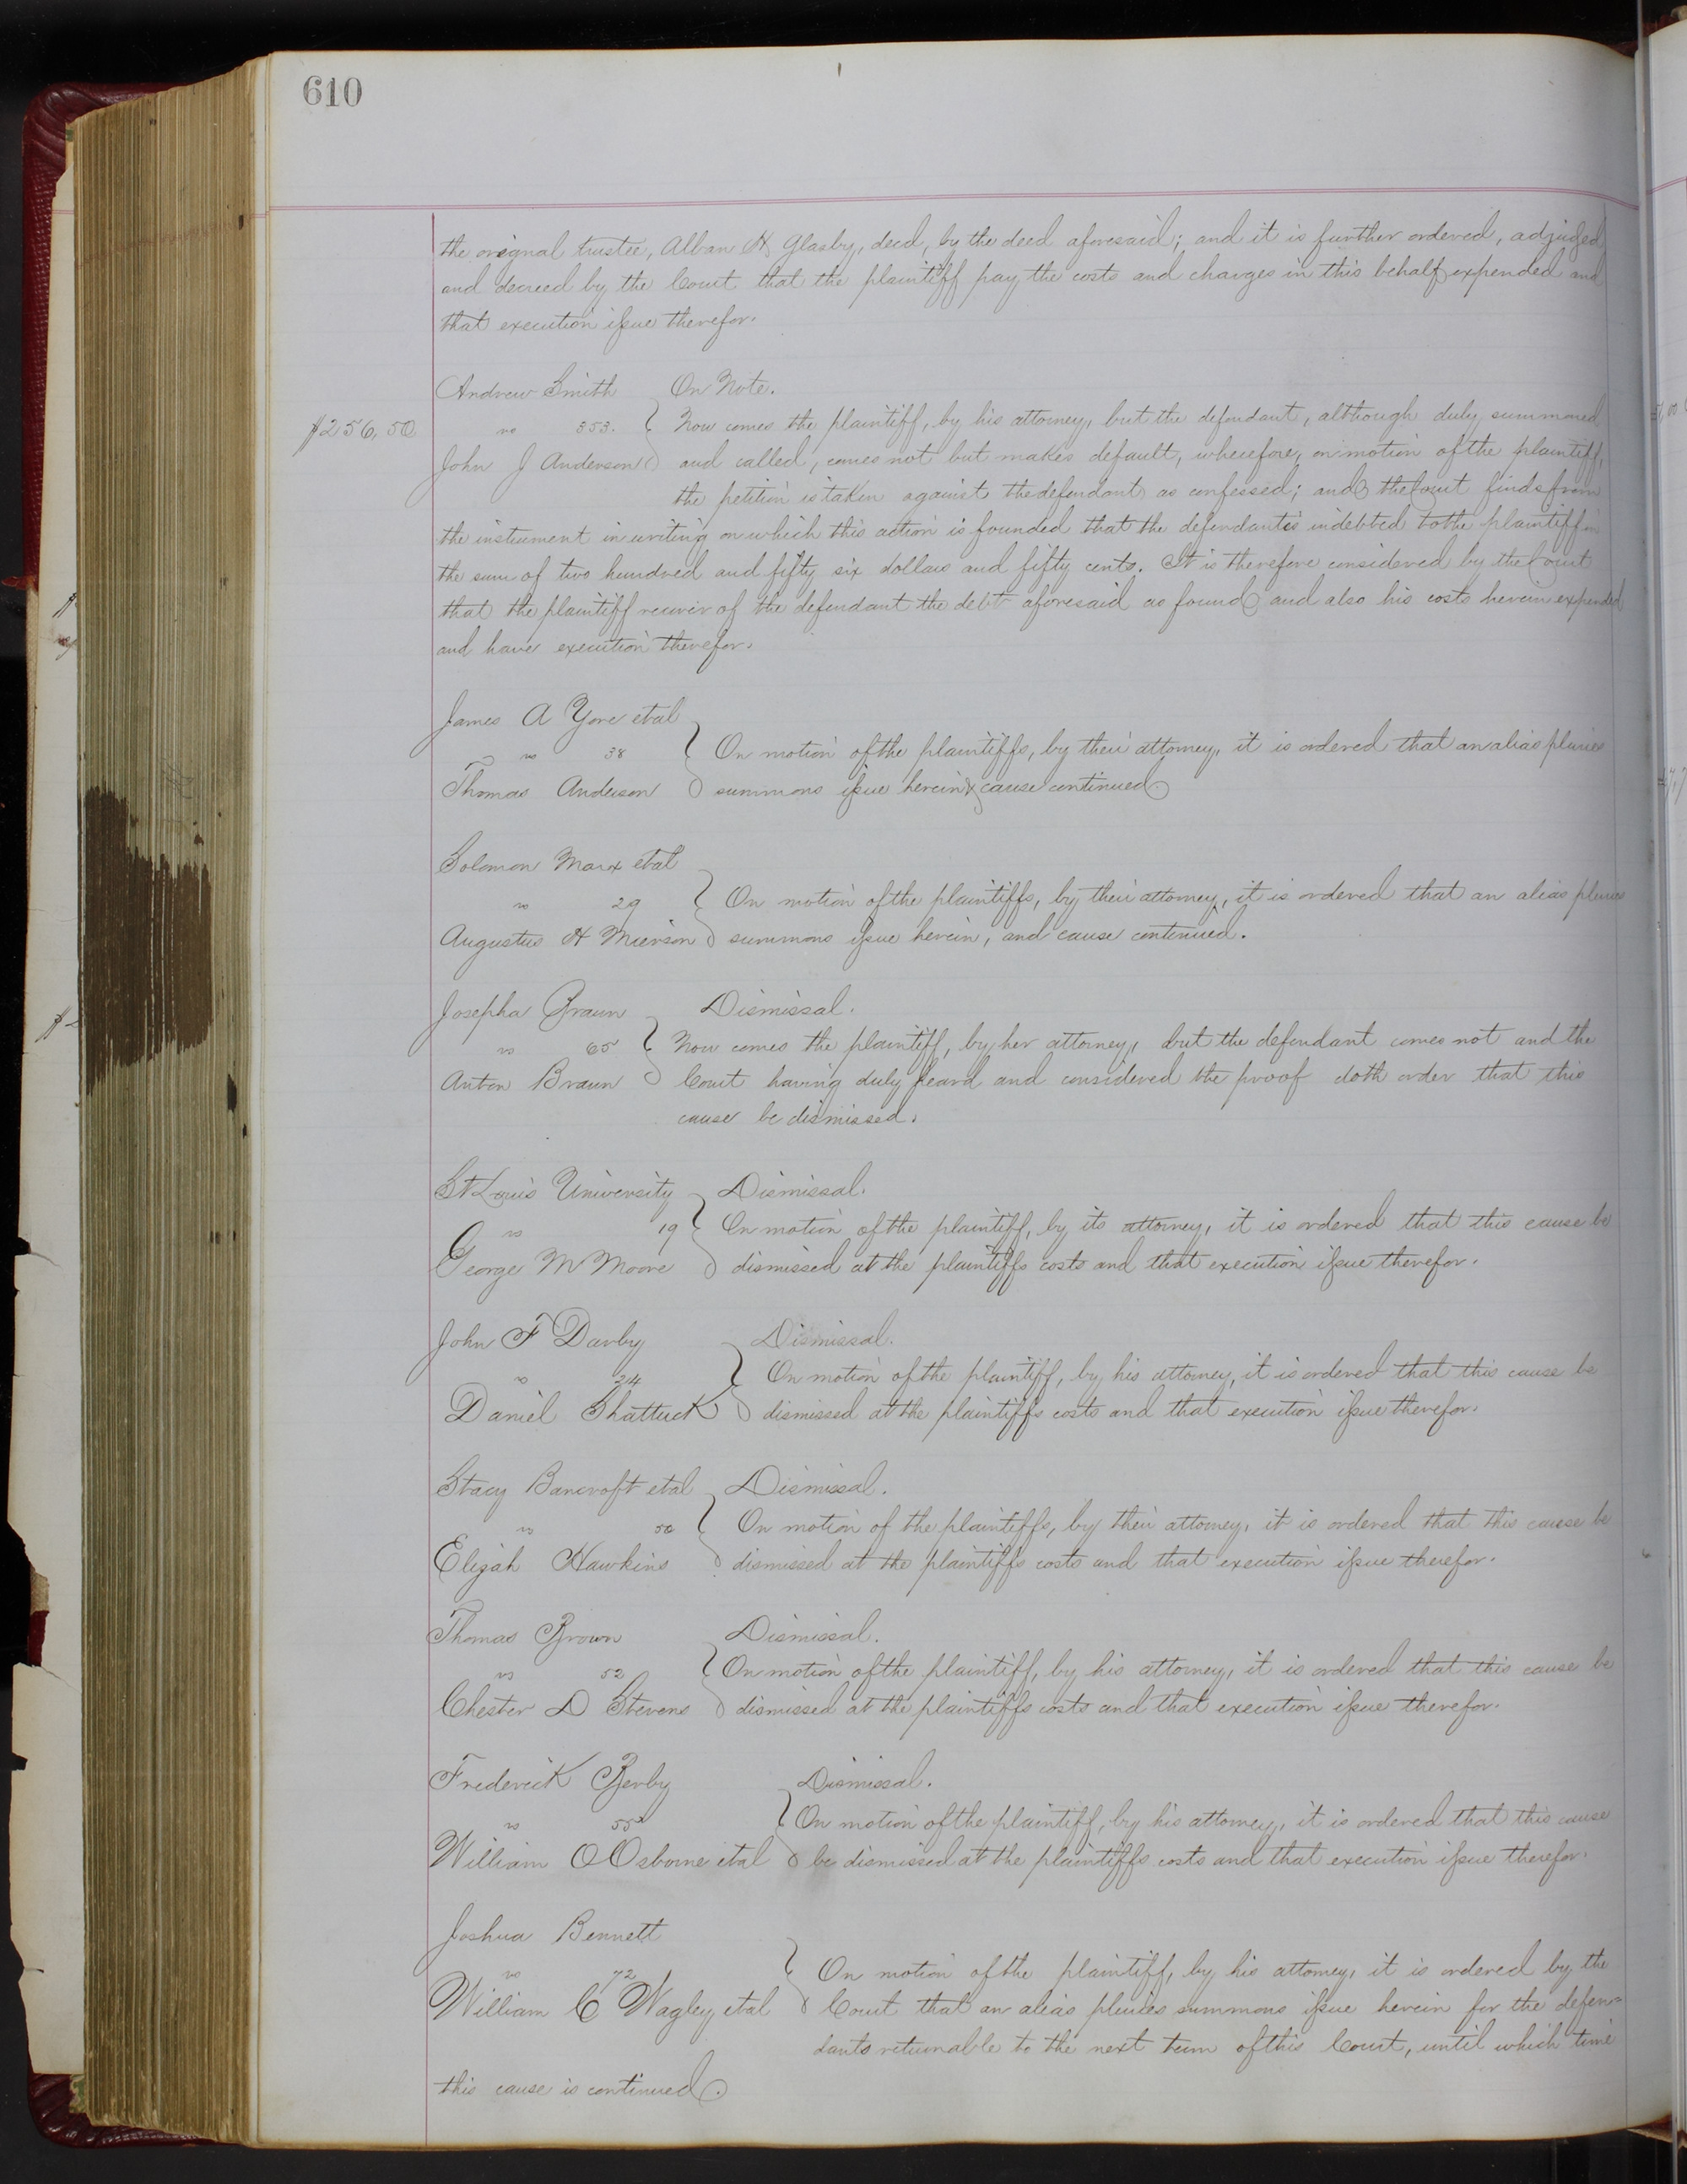 610
the orignal trustee, Alban H Glasby, decd, by the deed aforesaid; and it is further ordered, adjudged
and decreed by the Court that the plaintiff pay the costs and charges in this behalf expended and
that execution issue therefor.
Andrew Smith On Note.
$256,50 vs 353. Now comes the plaintiff, by his attorney, but the defendant, although duly summoned
John J Anderson and called, comes not but makes default, wherefore, on motion of the plaintiff,
the petition is taken against the defendant as confessed; and the Court finds from
the instrument in writing on which this action is founded that the defendant is indebted to the plaintiff in
the sum of two hundred and fifty six dollars and fifty cents. It is therefore considered by the Court
that the plaintiff recover of the defendant the debt aforesaid as found and also his costs herein expended
and have execution therefor.
James A Yore et al
vs 38 On motion of the plaintiffs, by their attorney, it is ordered that an alias pluries
Thomas Anderson summons issue herein & cause continued.
Solomon Marx et al
vs 29 On motion of the plaintiffs, by their attorney, it is ordered that an alias pluries
Augustus H summons issue herein, and cause continued.
Josepha Braun Dismissal.
vs 65 Now comes the plaintiff, by her attorney, but the defendant comes not and the
Anton Braun Court having duly heard and considered the proof doth order that this
cause be dismissed.
St Louis University Dismissal.
vs 19 On motion of the plaintiff, by its attorney, it is ordered that this cause be
George M Moore dismissed at the plaintiffs costs and that execution issue therefor.
John F Darby Dismissal.
vs 24 On motion of the plaintiff, by his attorney, it is ordered that this cause be
Daniel Shattuck dismissed at the plaintiffs costs and that execution issue therefor.
Stacy Bancroft et al Dismissal.
vs 50 On motion of the plaintiffs, by their attorney, it is ordered that this cause be
Elijah Hawkins dismissed at the plaintiffs costs and that execution issue therefor.
Thomas Brown Dismissal.
vs 52 On motion of the plaintiff, by his attorney, it is ordered that this cause be
Chester D Stevens dismissed at the plaintiffs costs and that execution issue therefor.
Frederick Berby Dismissal.
vs 55 On motion of the plaintiff, by his attorney, it is ordered that this cause
William O Osborne et al be dismissed at the plaintiffs costs and that execution issue therefor.
Joshua Bennett
vs 72 On motion of the plaintiff, by his attorney, it is ordered by the
William C Wagley et al Court that an alias pluries summons issue herein for the defen-
dants returnable to the next term of this Court, until which time
this cause is continued.